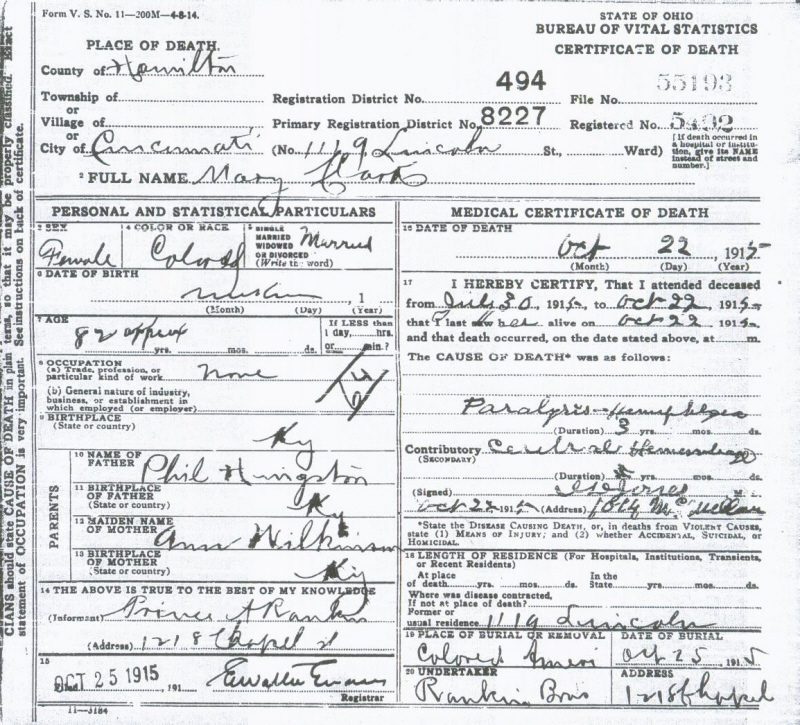 Form V. S. No. 11—200M—4-8-14.
PLACE OF DEATH.
STATE OF OHIO
BUREAU OF VITAL STATISTICS
CERTIFICATE OF DEATH
County of Hamilton
Township of
Registration District No. 494 File No. 55193
or
Village of
Primary Registration District No. 8227 Registered No. 5492
or
City of Cincinnati (No. 1119 Lincoln St., Ward)
[If death occurred in a hospital or institution, give its NAME instead of street and number.]
2 FULL NAME Mary Clark
PERSONAL AND STATISTICAL PARTICULARS
3 SEX
Female
4 COLOR OR RACE
Colored
5 SINGLE
MARRIED
WIDOWED
OR DIVORCED
(Write the word)
Married
6 DATE OF BIRTH
, 1
(Month) (Day) (Year)
7 AGE
82 approx
yrs. mos. ds.
If LESS than
1 day, hrs.
or min.?
8 OCCUPATION
(a) Trade, profession, or
particular kind of work None
(b) General nature of industry,
business, or establishment in
which employed (or employer)
9 BIRTHPLACE
(State or country)
Ky
PARENTS
10 NAME OF
FATHER
Phil
11 BIRTHPLACE
OF FATHER
(State or country)
Ky
12 MAIDEN NAME
OF MOTHER
Ann Wilkinson
13 BIRTHPLACE
OF MOTHER
(State or country)
Ky
14 THE ABOVE IS TRUE TO THE BEST OF MY KNOWLEDGE
(Informant) Prince A Rankin
(Address) 1218 Chapel st
15
Filed OCT 25 1915, 191
Registrar
11—3184
MEDICAL CERTIFICATE OF DEATH
16 DATE OF DEATH
Oct 22 , 1915
(Month) (Day) (Year)
17 I HEREBY CERTIFY, That I attended deceased
from July 30 1915, to Oct 22, 1915,
that I last saw her alive on Oct 22 1915,
and that death occurred, on the date stated above, at m.
The CAUSE OF DEATH* was as follows:
Paralysis—Hemiplegia
(Duration) 3 yrs. mos. ds.
Contributory Cerebral Hemorrhage
(SECONDARY)
(Duration) yrs. mos. ds.
(Signed) Jones M
Oct 25 1915 (Address)
*State the DISEASE CAUSING DEATH, or, in deaths from VIOLENT CAUSES,
state (1) MEANS OF INJURY; and (2) whether ACCIDENTAL, SUICIDAL, or
HOMICIDAL.
18 LENGTH OF RESIDENCE (For Hospitals, Institutions, Transients,
or Recent Residents)
At place
of death yrs. mos. ds.
In the
State yrs. mos. ds.
Where was disease contracted,
If not at place of death?
Former or
usual residence 1119 Lincoln
19 PLACE OF BURIAL OR REMOVAL
Colored Ameri
DATE OF BURIAL
Oct 25, 1915
20 UNDERTAKER
Rankin Bros
ADDRESS
1218 Chapel
CIANS should state CAUSE OF DEATH in plain terms, so that it may be properly classified. Exact
statement of OCCUPATION is very important. See instructions on back of certificate.